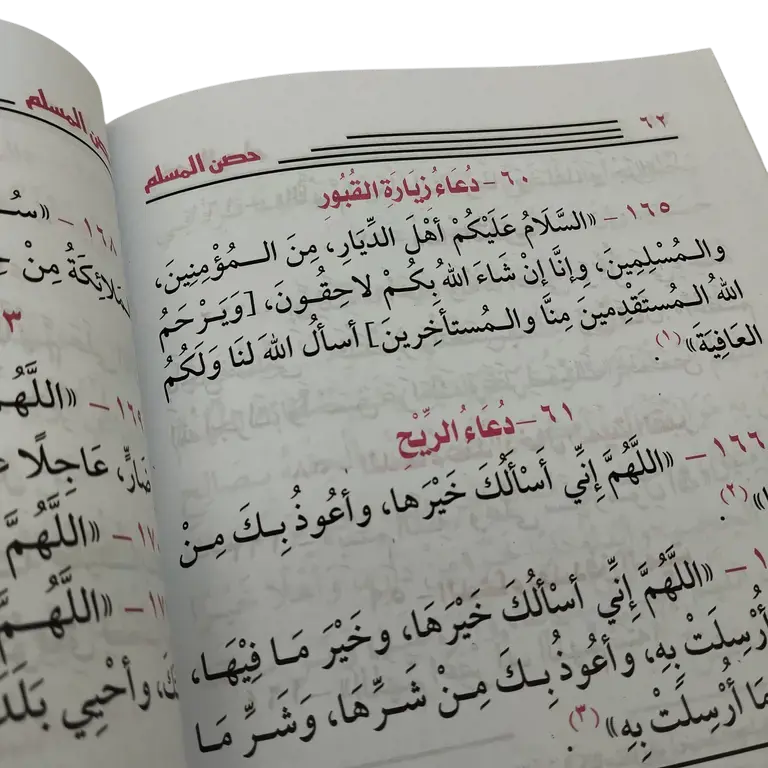 ٦٢
حصن المسلم
٦٠- دُعَاءُ زِيَارَةِ القُبُورِ
١٦٥ - «السَّلَامُ عَلَيْكُمْ أَهْلَ الدِّيَارِ، مِنَ الـمُؤْمِنِينَ،
والـمُسْلِمِينَ، وإنَّا إنْ شَاءَ اللهُ بِكُمْ لاحِقُونَ، [وَيَرْحَمُ
اللهُ الـمُستَقْدِمينَ مِنَّا والـمُستأخِرينَ] أسألُ اللهَ لنَا وَلَكُمُ
العَافِيَةَ» (١).
٦١- دُعَاءُ الرِّيْحِ
١٦٦ - «اللَّهُمَّ إِنِّي أَسْأَلُكَ خَيْرَها، وأعُوذُ بِـكَ مِـنْ
(٢).
«اللَّهُمَّ إِنِّي أسْألُكَ خَيْرَهَا، وخَيْرَ مَـا فِيْهَـا،
أُرْسِلَتْ بِهِ، وأعُوذُ بِـكَ مِـنْ شَـرِّهَا، وَشَـرِّ مَـا
أُرْسِلَتْ بِهِ» (٣).
المسلم
١٦٨ -
مِنْ
«اللَّهُمَّ
عَاجِلًا
«اللَّهُمَّ
«اللَّهُـمَّ
وأحْيِي